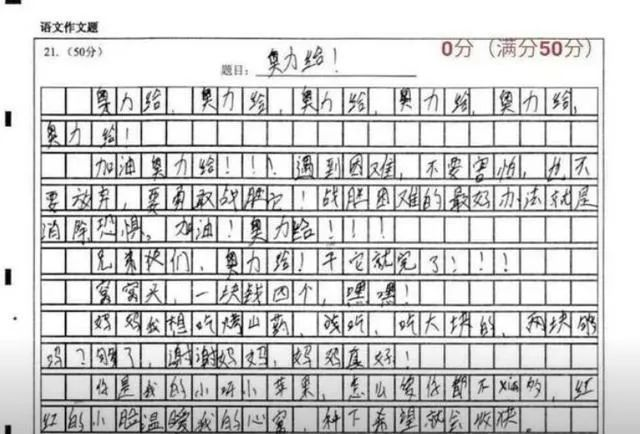 语文作文题
21.（50分）
题目：奥力给！
0分（满分50分）
奥力给，奥力给，奥力给，奥力给，奥力给，
奥力给！
加油奥力给！！！遇到困难，不要害怕，也不
要放弃，要勇敢战胜它！战胜困难的最好办法就是
消除恐惧。加油！奥力给！！！！
兄弟们，奥力给！干它就完了！！！
窝窝头，一块钱四个，嘿嘿！
妈妈我想吃烤山药，吃吃，吃大块的，两块够
吗？够了，谢谢妈妈，妈妈真好！
你是我的小呀小苹果，怎么爱你都不xian的，红
红的小脸温暖我的心窝，种下希望就会收获。